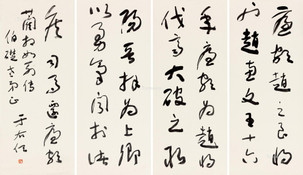 廉頗者趙之良將
也趙惠文王十六
年廉頗為趙將
伐齊大破之取
陽晉拜為上卿
以勇氣聞於諸
侯司馬遷廉頗
藺相如列傳
伯 正
于右任